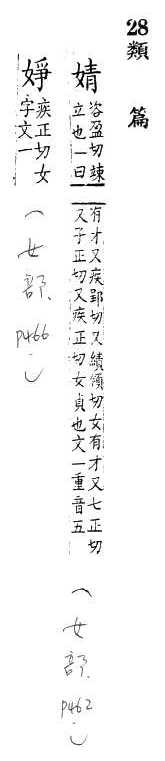 28類 篇
婧 咨盈切竦
立也一曰
有才又疾郢切又績領切女有才又七正切
又子正切又疾正切女貞也文一重音五
(女部、P462.)
婙 疾正切女
字文一
(女部、P466.)